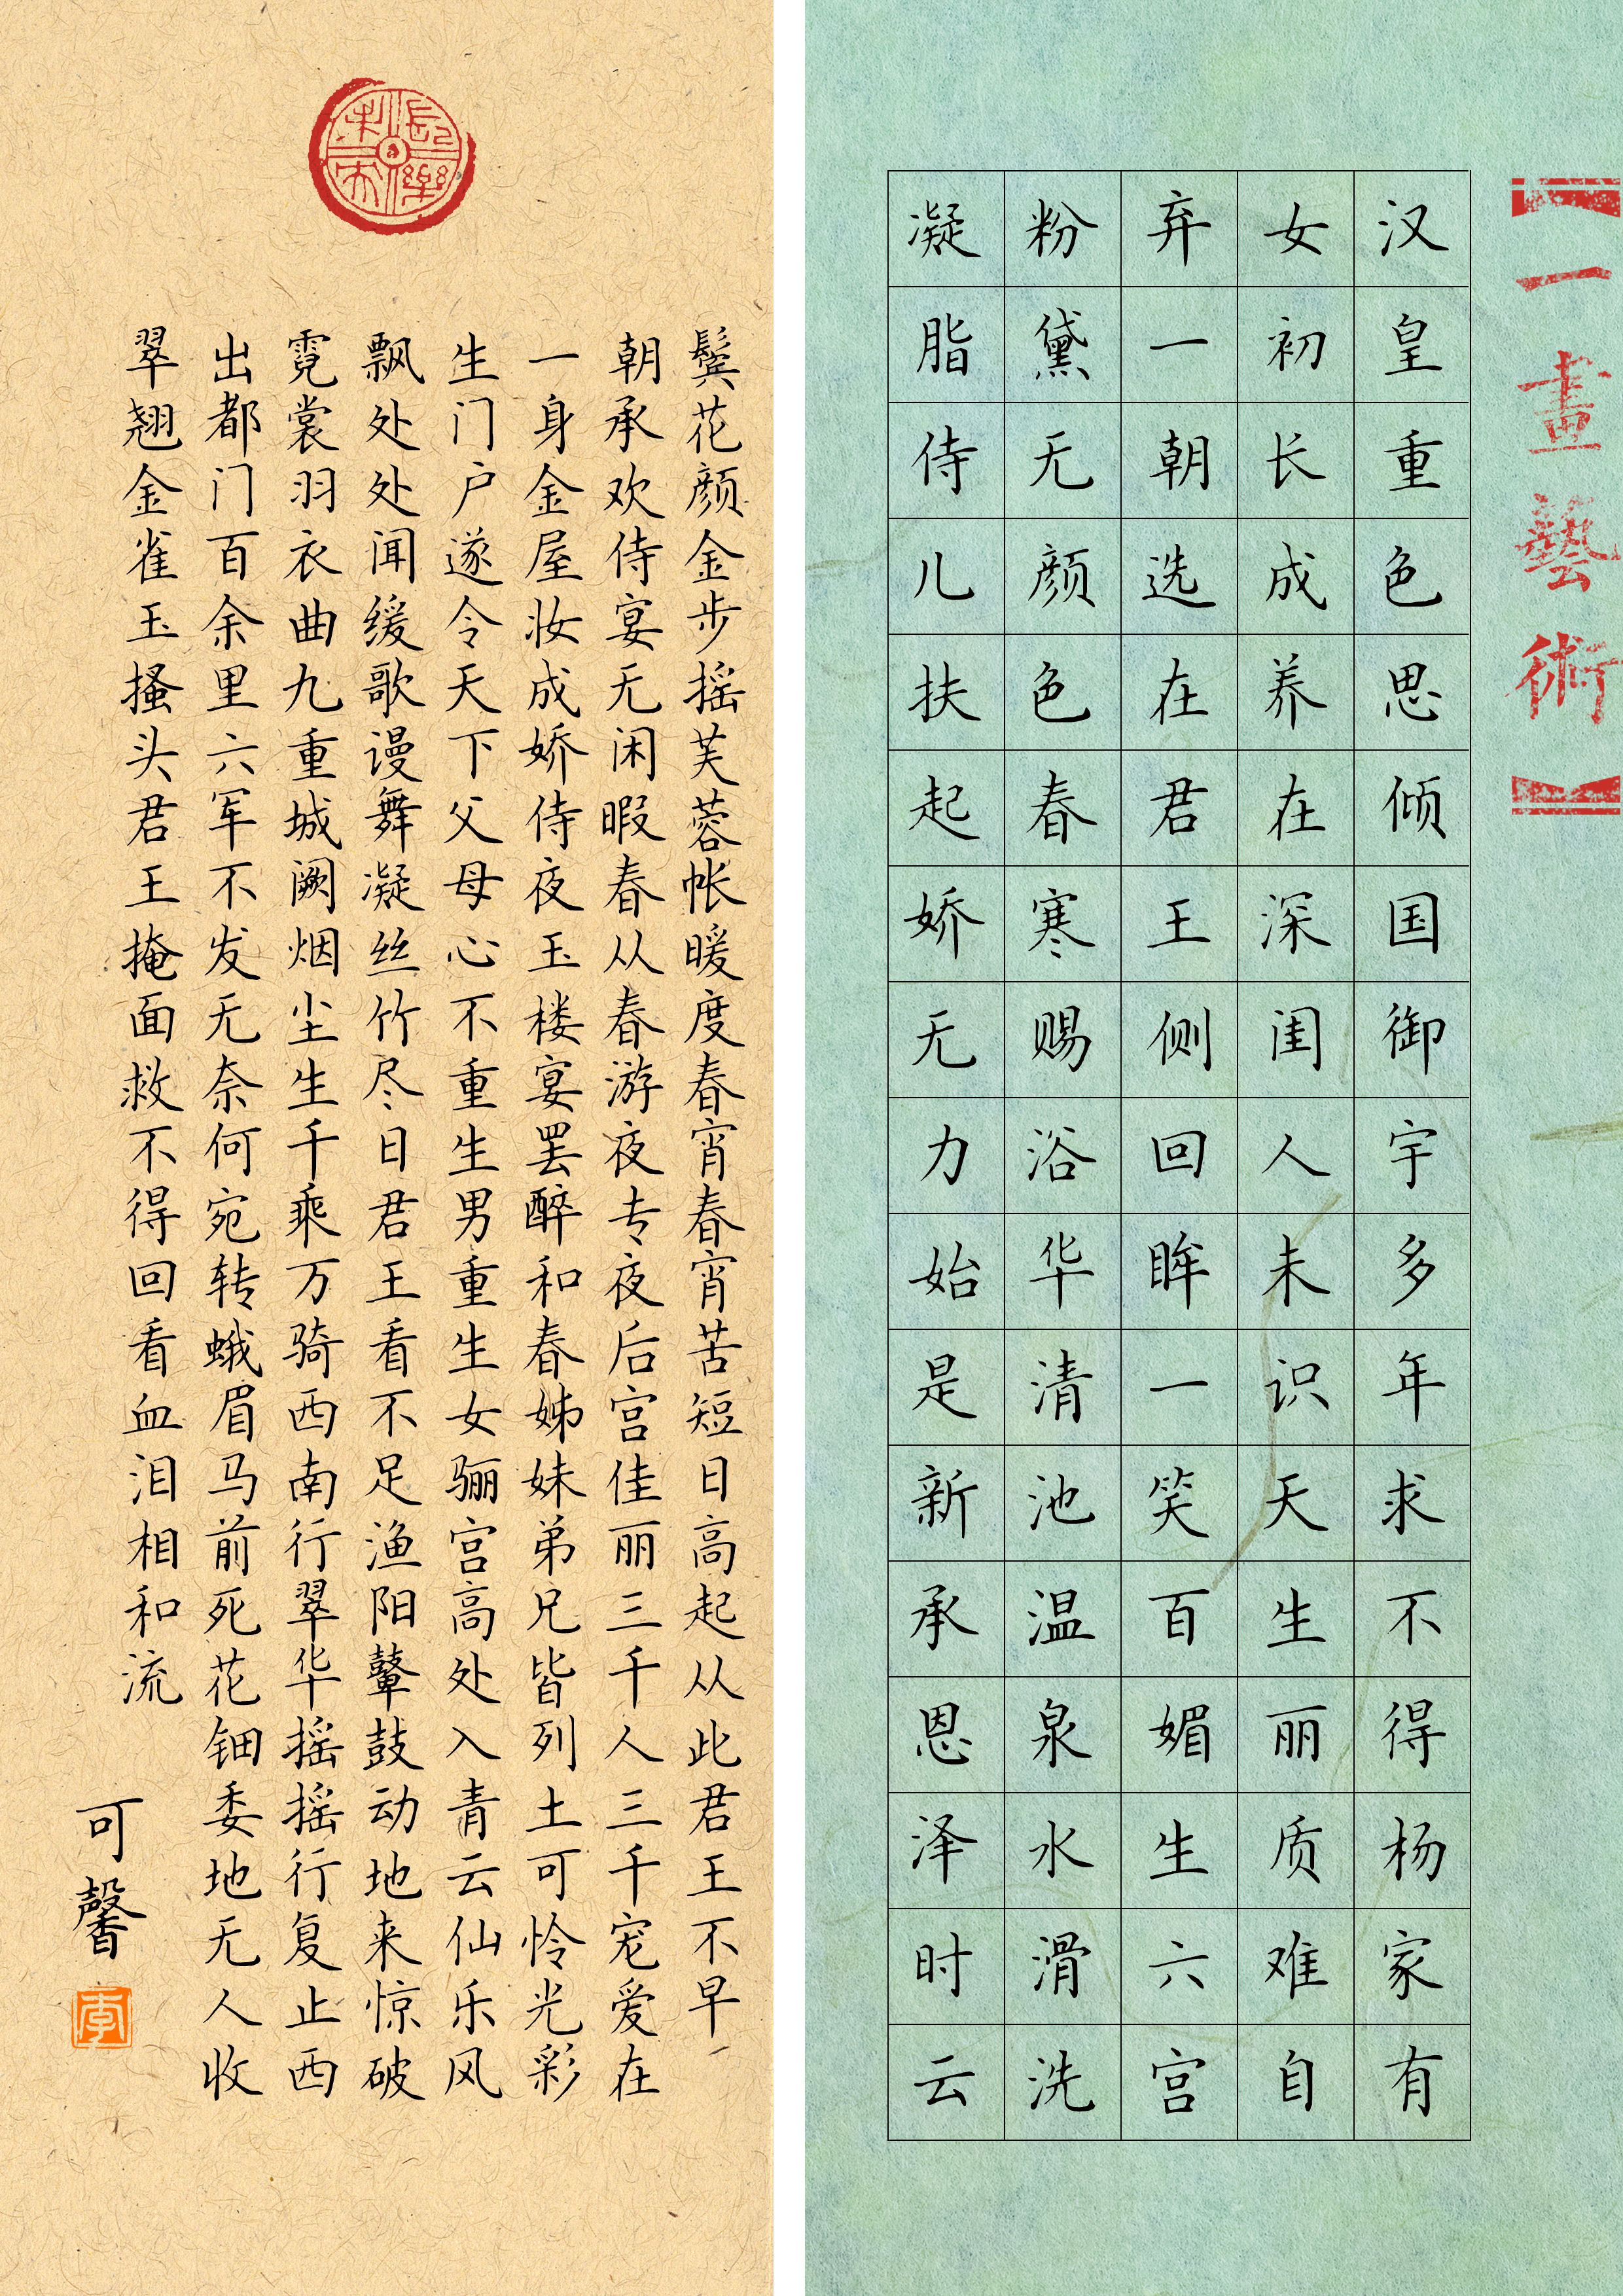 一畫藝術
汉皇重色思倾国御宇多年求不得杨家有
女初长成养在深闺人未识天生丽质难自
弃一朝选在君王侧回眸一笑百媚生六宫
粉黛无颜色春寒赐浴华清池温泉水滑洗
凝脂侍儿扶起娇无力始是新承恩泽时云
長樂未央
鬓花颜金步摇芙蓉帐暖度春宵春宵苦短日高起从此君王不早
朝承欢侍宴无闲暇春从春游夜专夜后宫佳丽三千人三千宠爱在
一身金屋妆成娇侍夜玉楼宴罢醉和春姊妹弟兄皆列土可怜光彩
生门户遂令天下父母心不重生男重生女骊宫高处入青云仙乐风
飘处处闻缓歌谩舞凝丝竹尽日君王看不足渔阳鼙鼓动地来惊破
霓裳羽衣曲九重城阙烟尘生千乘万骑西南行翠华摇摇行复止西
出都门百余里六军不发无奈何宛转蛾眉马前死花钿委地无人收
翠翘金雀玉搔头君王掩面救不得回看血泪相和流
可馨
李